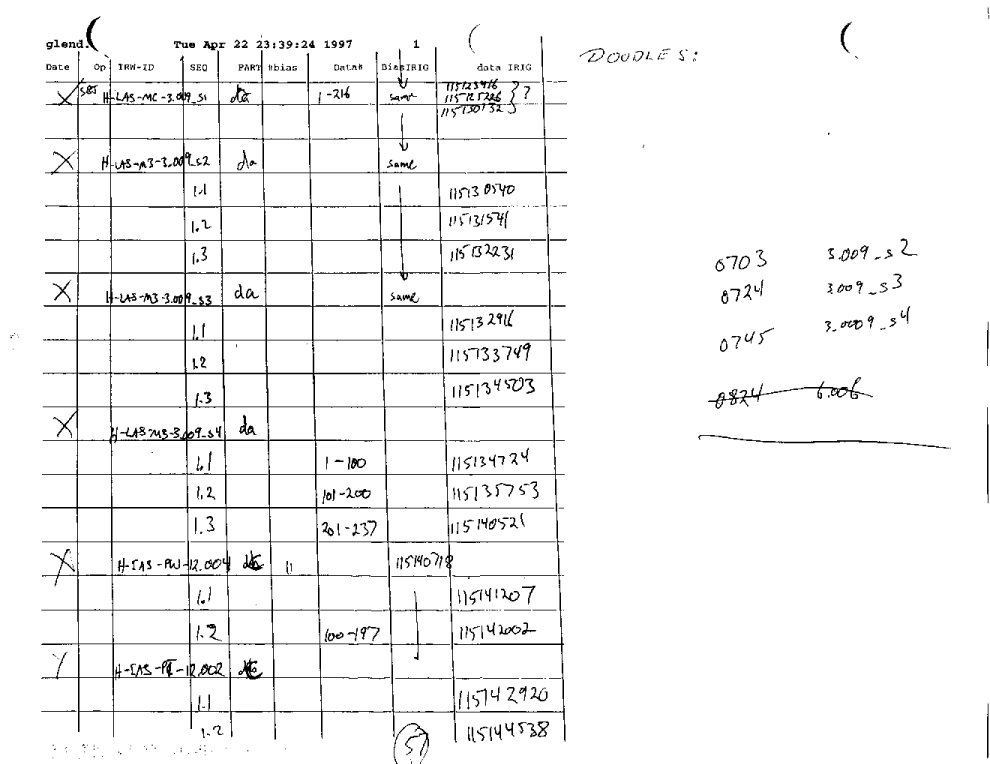 glend. Tue Apr 22 23:39:24 1997 1
Date Op TRW-ID SEQ PART #bias Data# BiasIRIG data IRIG
X H-LAS-MC-3.009_s1 da 1-216 same 115123416 } ?
115125226
115130132
X H-LAS-M3-3.009_s2 da same
1.1 115130540
1.2 115131541
1.3 115132231
X H-LAS-M3-3.009_s3 da same
1.1 115132916
1.2 115133749
1.3 115134503
X H-LAS-M3-3.009_s4 da
1.1 1-100 115134724
1.2 101-200 115135753
1.3 201-237 115140521
X H-IAS-PW-12.004 11 115140718
1.1 115141207
1.2 100-197 115142002
H-IAS-PE-12.002
1.1 115142920
1.2 115144538
57
DOODLES:
0703 3.009_s2
0724 3.009_s3
0745 3.0009_s4
0824 6.006